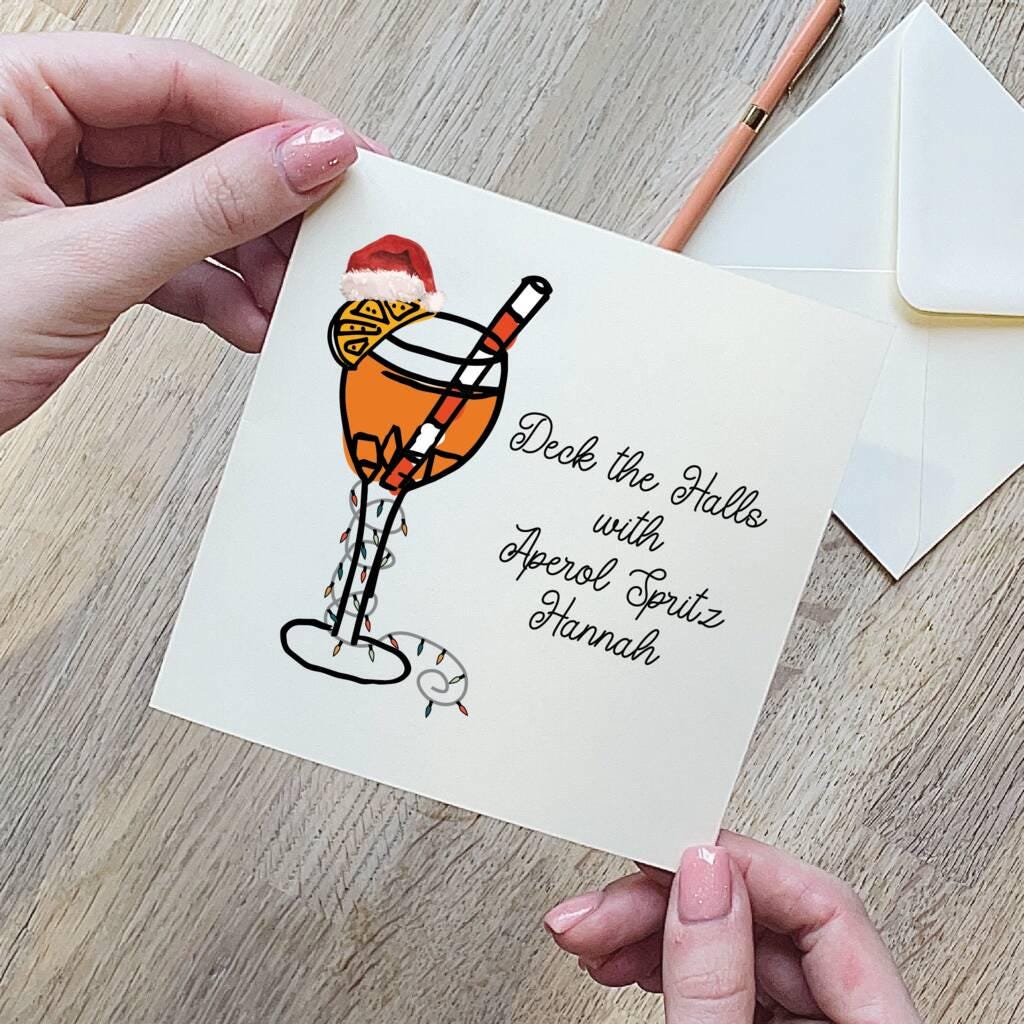 Deck the Halls
with
Aperol Spritz
Hannah